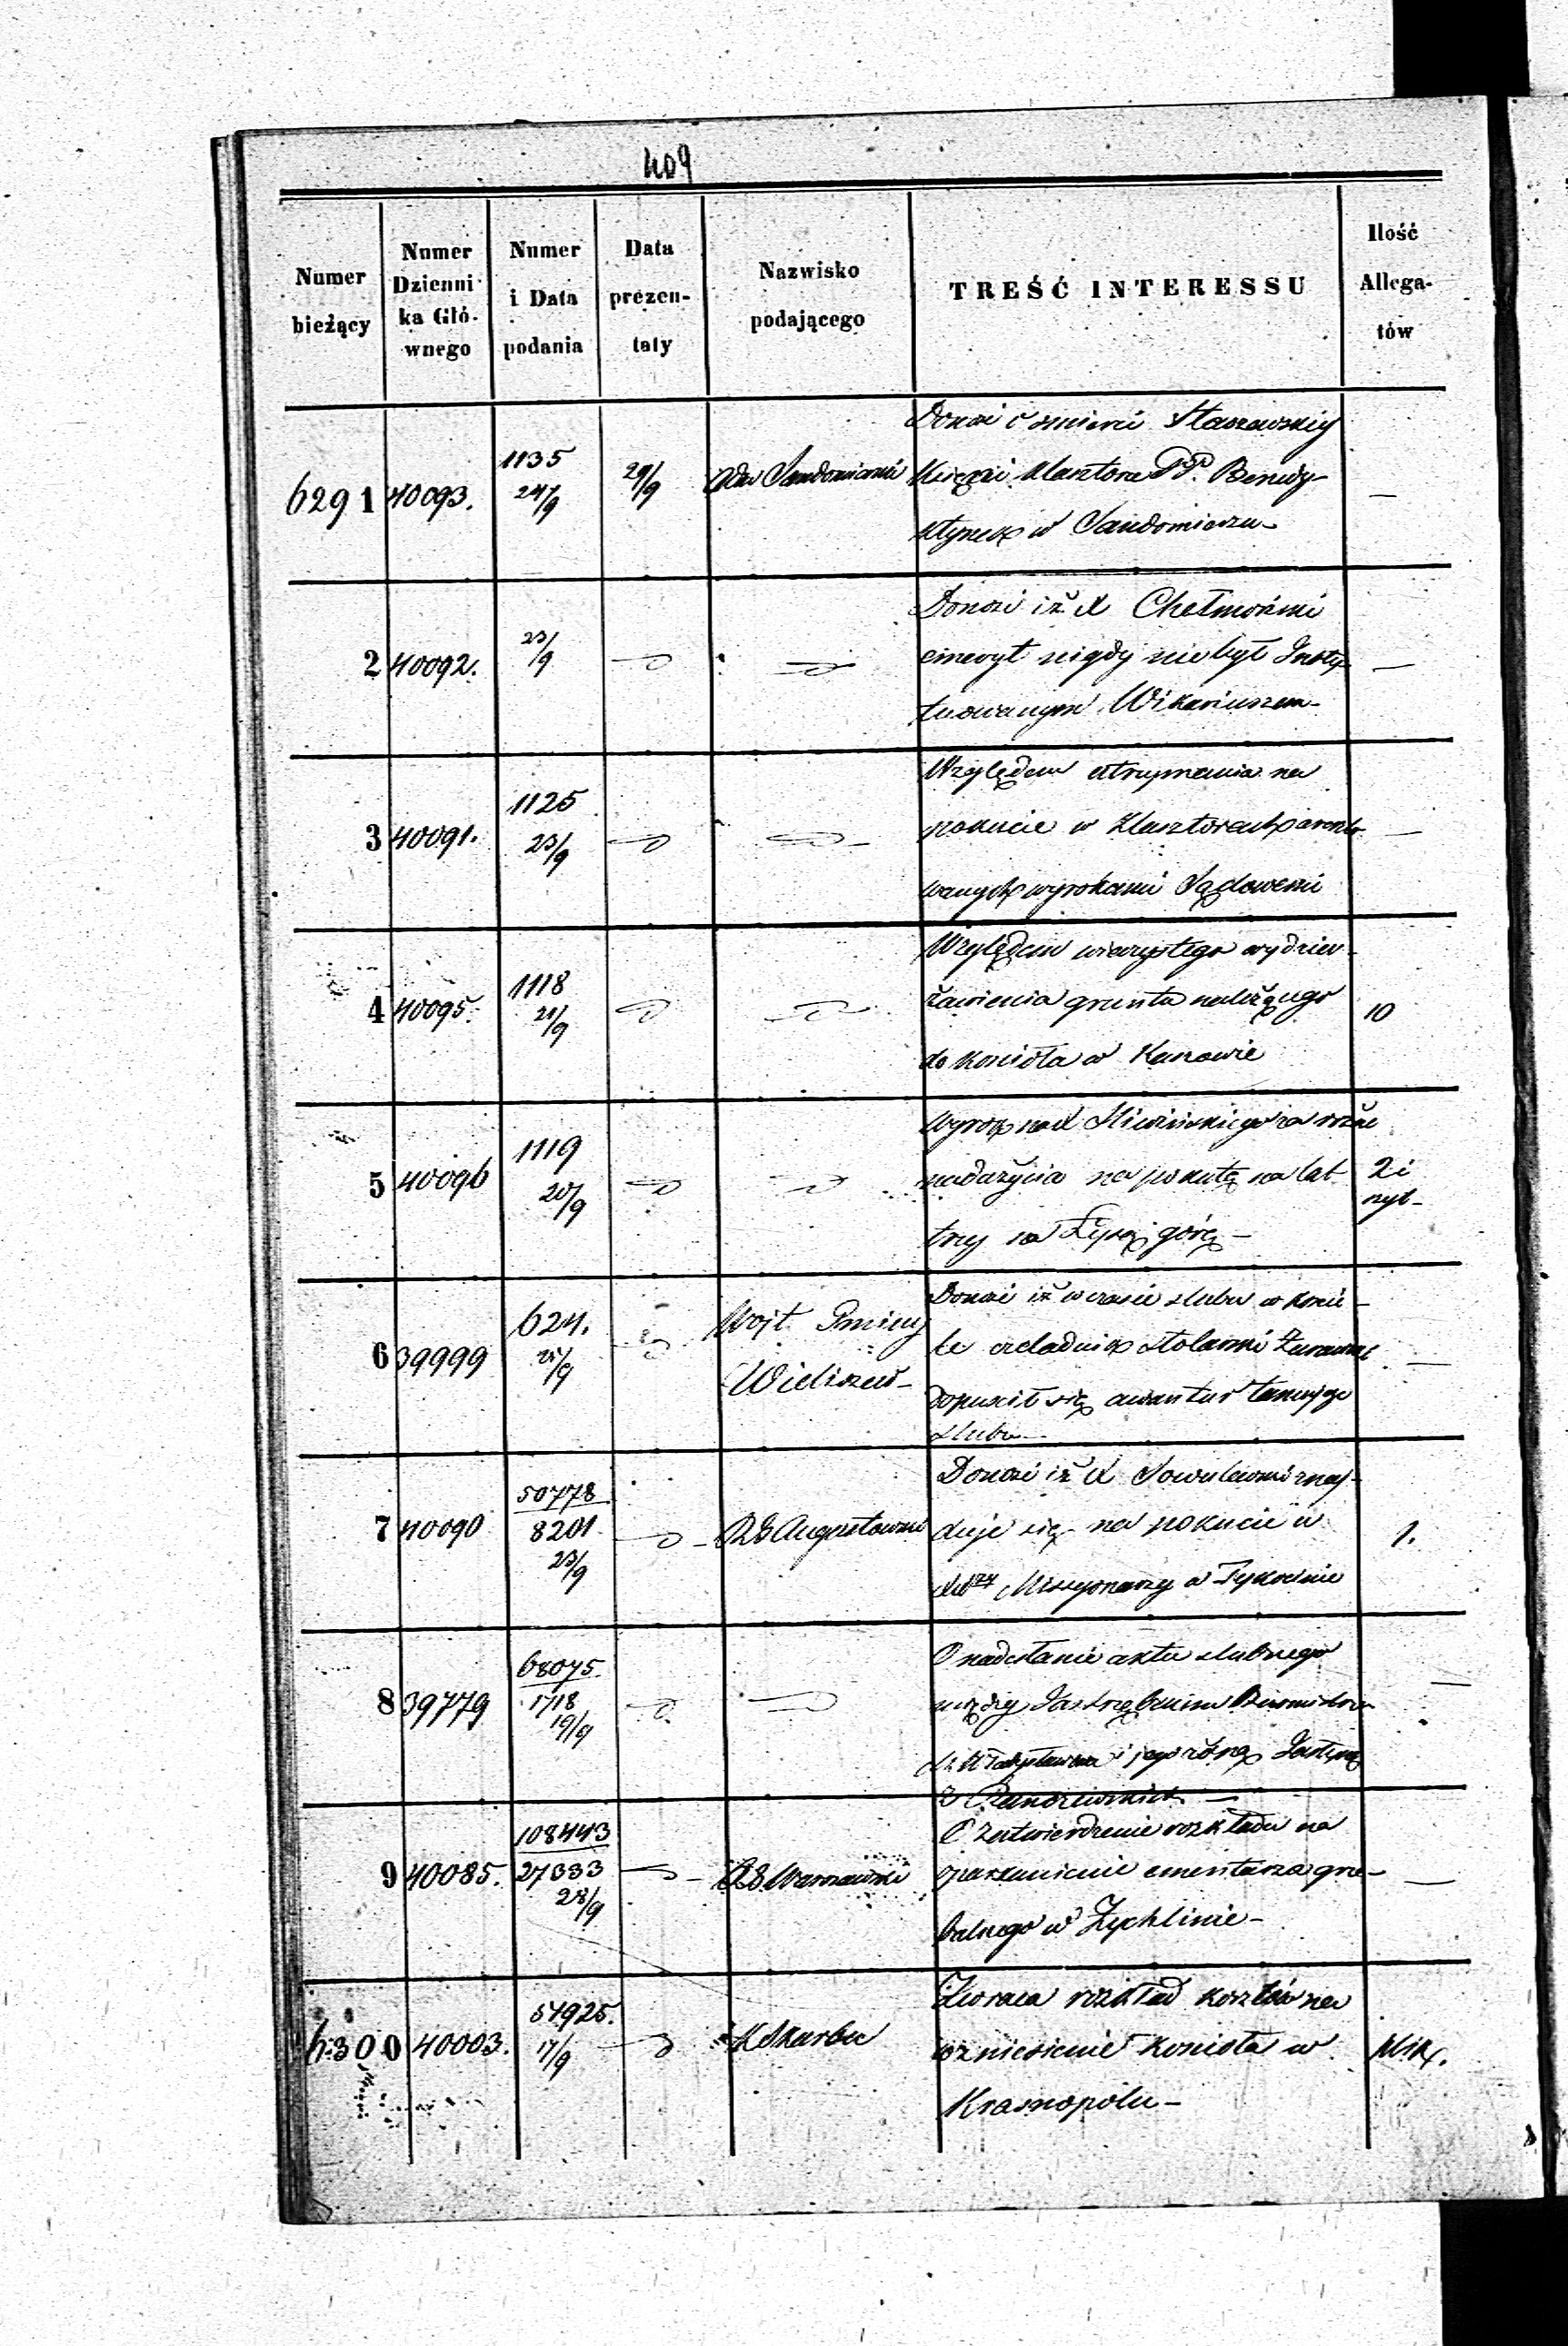 409
Numer bieżący | Numer Dzienni-ka Głó-wnego | Numer i Data podania | Data prezen-taty | Nazwisko podającego | TREŚĆ INTERESSU | Ilość Allega-tów
6291 | 40093. | 1135 24/9 | 29/9 | Adm Sandomierski | Donosi o śmierci Staszewskiej
Xięni klasztoru PP. Benedy-
ktynek w Sandomierzu - | —
2 | 40092. | 23/9 | Donosi iż X Chełmoński
emeryt nigdy nie był Insty-
tuowanym Wikariuszem - | —
3 | 40091. | 1125 23/9 | Względem utrzymania na
pokucie w klasztorach
wanych wyrokami Sądowemi | —
4 | 40095. | 1118 21/9 | Względem wieczystego wydzier-
żawienia gruntu należącego
do kościoła w Kunowie | 10
5 | 40096 | 1119 20/9 | Wyrok na X za różne
nadużycia na pokutę na lat
trzy na Łysą górę - | 2 i
6 | 39999 | 624. 21/9 | Wojt Gminy
Wieliszew - | Donosi iż w czasie ślubu w koście-
le czeladnik stolarski
dopuścił się awantur
ślubu - | —
7 | 40090 | 50778 8201 23/9 | RG Augustowski | Donosi iż X znaj-
duje się na pokucie u
Missyonarzy w Tykocinie | 1.
8 | 39779 | 68075. 1718 19/9 | O nadesłanie aktu ślubnego
między Jastrzębskim Burmistrzem
i jego żoną Justyną
z | —
9 | 40085. | 108443 27333 28/9 | RG Warszawski | O zatwierdzenie rozkładu na
oparkanienie cmentarza grze-
balnego w Żychlinie - | —
6300 | 40003. | 54925. 17/9 | K Skarbu | Zwraca rozkład kosztów na
wzniesienie kościoła w
Krasnopolu -